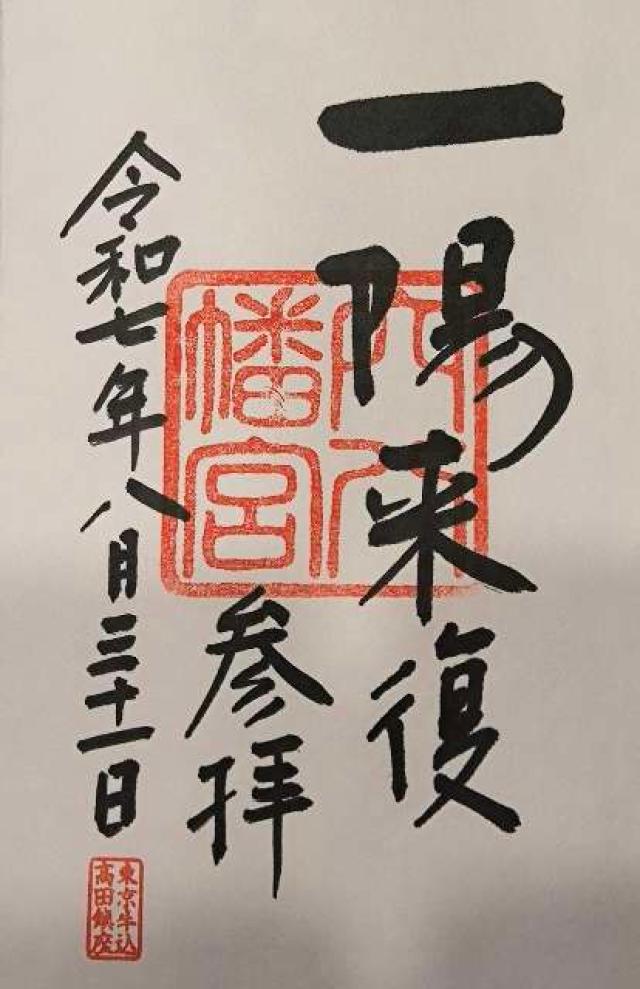 一陽来復
参拝
令和七年八月三十一日
穴八幡宮
東京牛込
高田鎮座